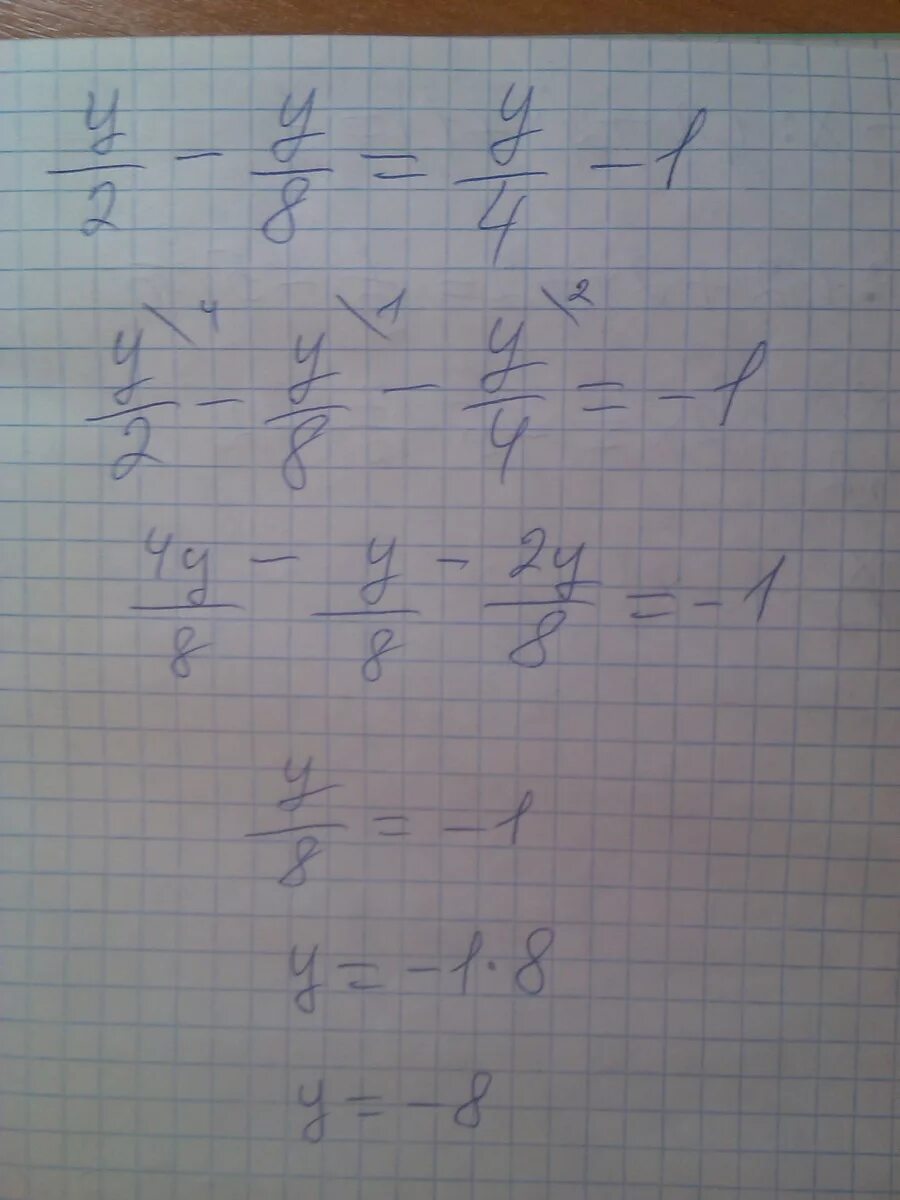 y/2 - y/8 = y/4 - 1
y\4/2 - y\1/8 - y\2/4 = -1
4y/8 - y/8 - 2y/8 = -1
y/8 = -1
y = -1·8
y = -8